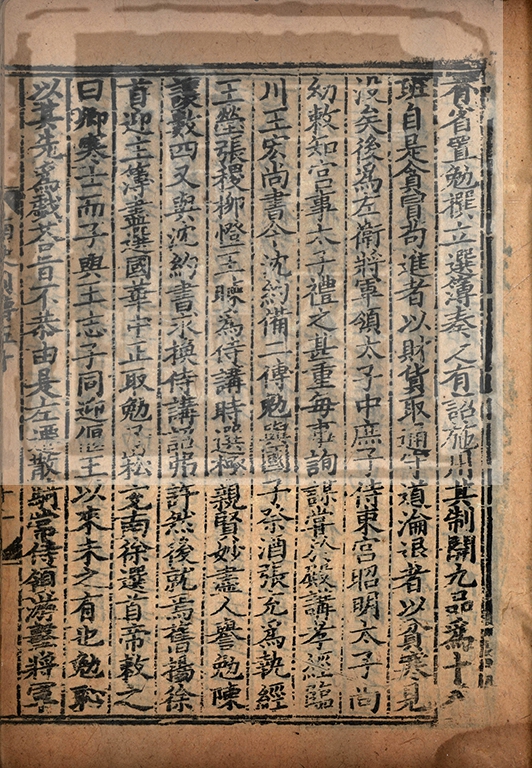 有省置勉撰立選簿奏之有詔施用其制開九品為十八
班自是貪冒苟進者以財貨取通守道淪退者以貧寒見
没矣後為左衛將軍領太子中庶子侍東宮昭明太子尚
幼敕知宮事太子禮之甚重每事詢謀嘗於殿講孝經臨
川王宏尚書令沈約備二傅勉與國子祭酒張充為執經
王瑩張稷柳憕王暕為侍講時選極親賢妙盡人譽勉陳
讓數四又與沈約書求換侍講詔弗許然後就焉舊揚徐
首迎主簿盡選國華中正取勉子崧充南徐選首帝敕之
曰卿寒士而子與王志子同迎偃王以來未之有也勉恥
以其先為戲荅旨不恭由是左遷散騎常侍領游擊將軍